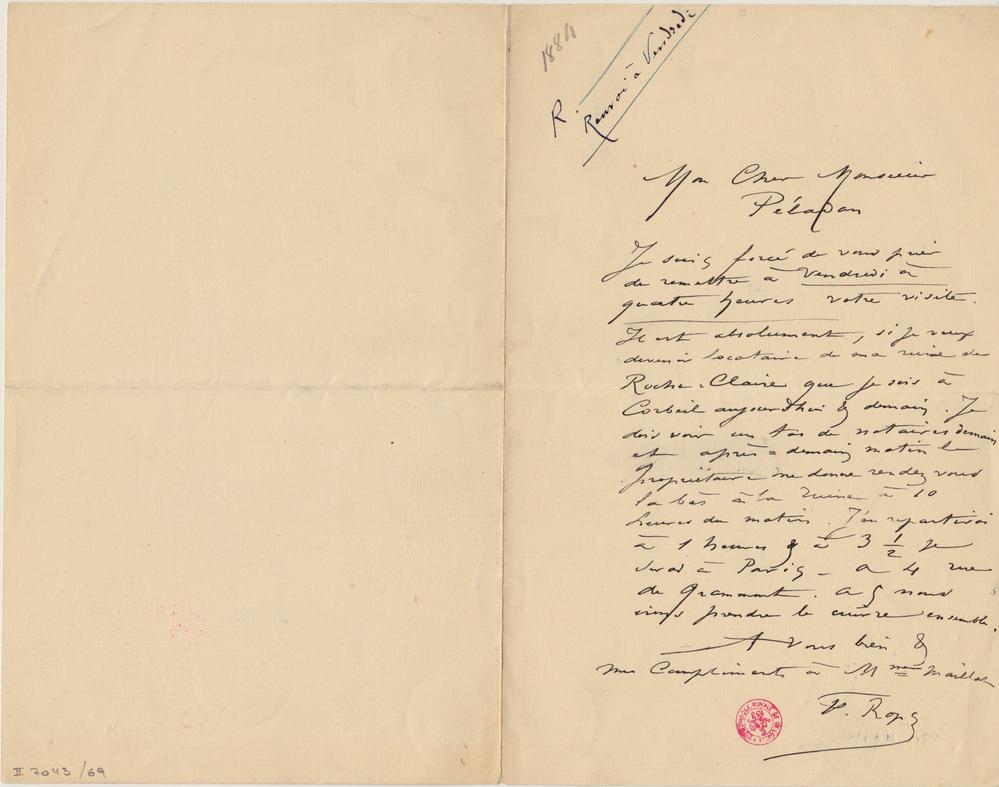 1884
R.
Renvoi à Vendredi
Mon Cher Monsieur
Péladan
Je suis forcé de vous prier
de remettre à Vendredi à
quatre heures votre visite.
Il est absolument, si je veux
devenir locataire de ma ruine de
Roche-Claire que je sois à
Corbeil aujourd'hui & demain. Je
dois voir un tas de notaires demain
et après-demain matin le
propriétaire me donne rendez vous
la bàs à la ruine à 10
heures du matin. J'en repartirai
à 1 heures & à 3 1/2 je
serai à Paris - a 4 rue
de Grammont. a 5 nous
irons prendre le cuivre ensemble.
A vous bien &
mes Compliments à Mme Maillat
F. Rops
II 7043 /69